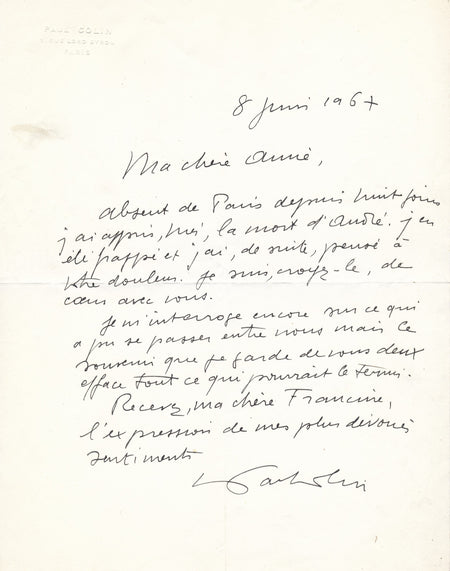 PAUL COLIN
RUE LORD BYRON
PARIS
8 Juin 1967
Ma chère Amie,
absent de Paris depuis huit jours
j'ai appris, hier, la mort d'André. j'en
été frappé et j'ai, de suite, pensé à
votre douleur. Je suis, croyez-le, de
cœur avec vous.
Je m'interroge encore sur ce qui
a pu se passer entre nous mais le
souvenir que je garde de vous deux
efface tout ce qui pourrait le ternir.
Recevez, ma chère Francine,
l'expression de mes plus dévoués
sentiments
Paul Colin